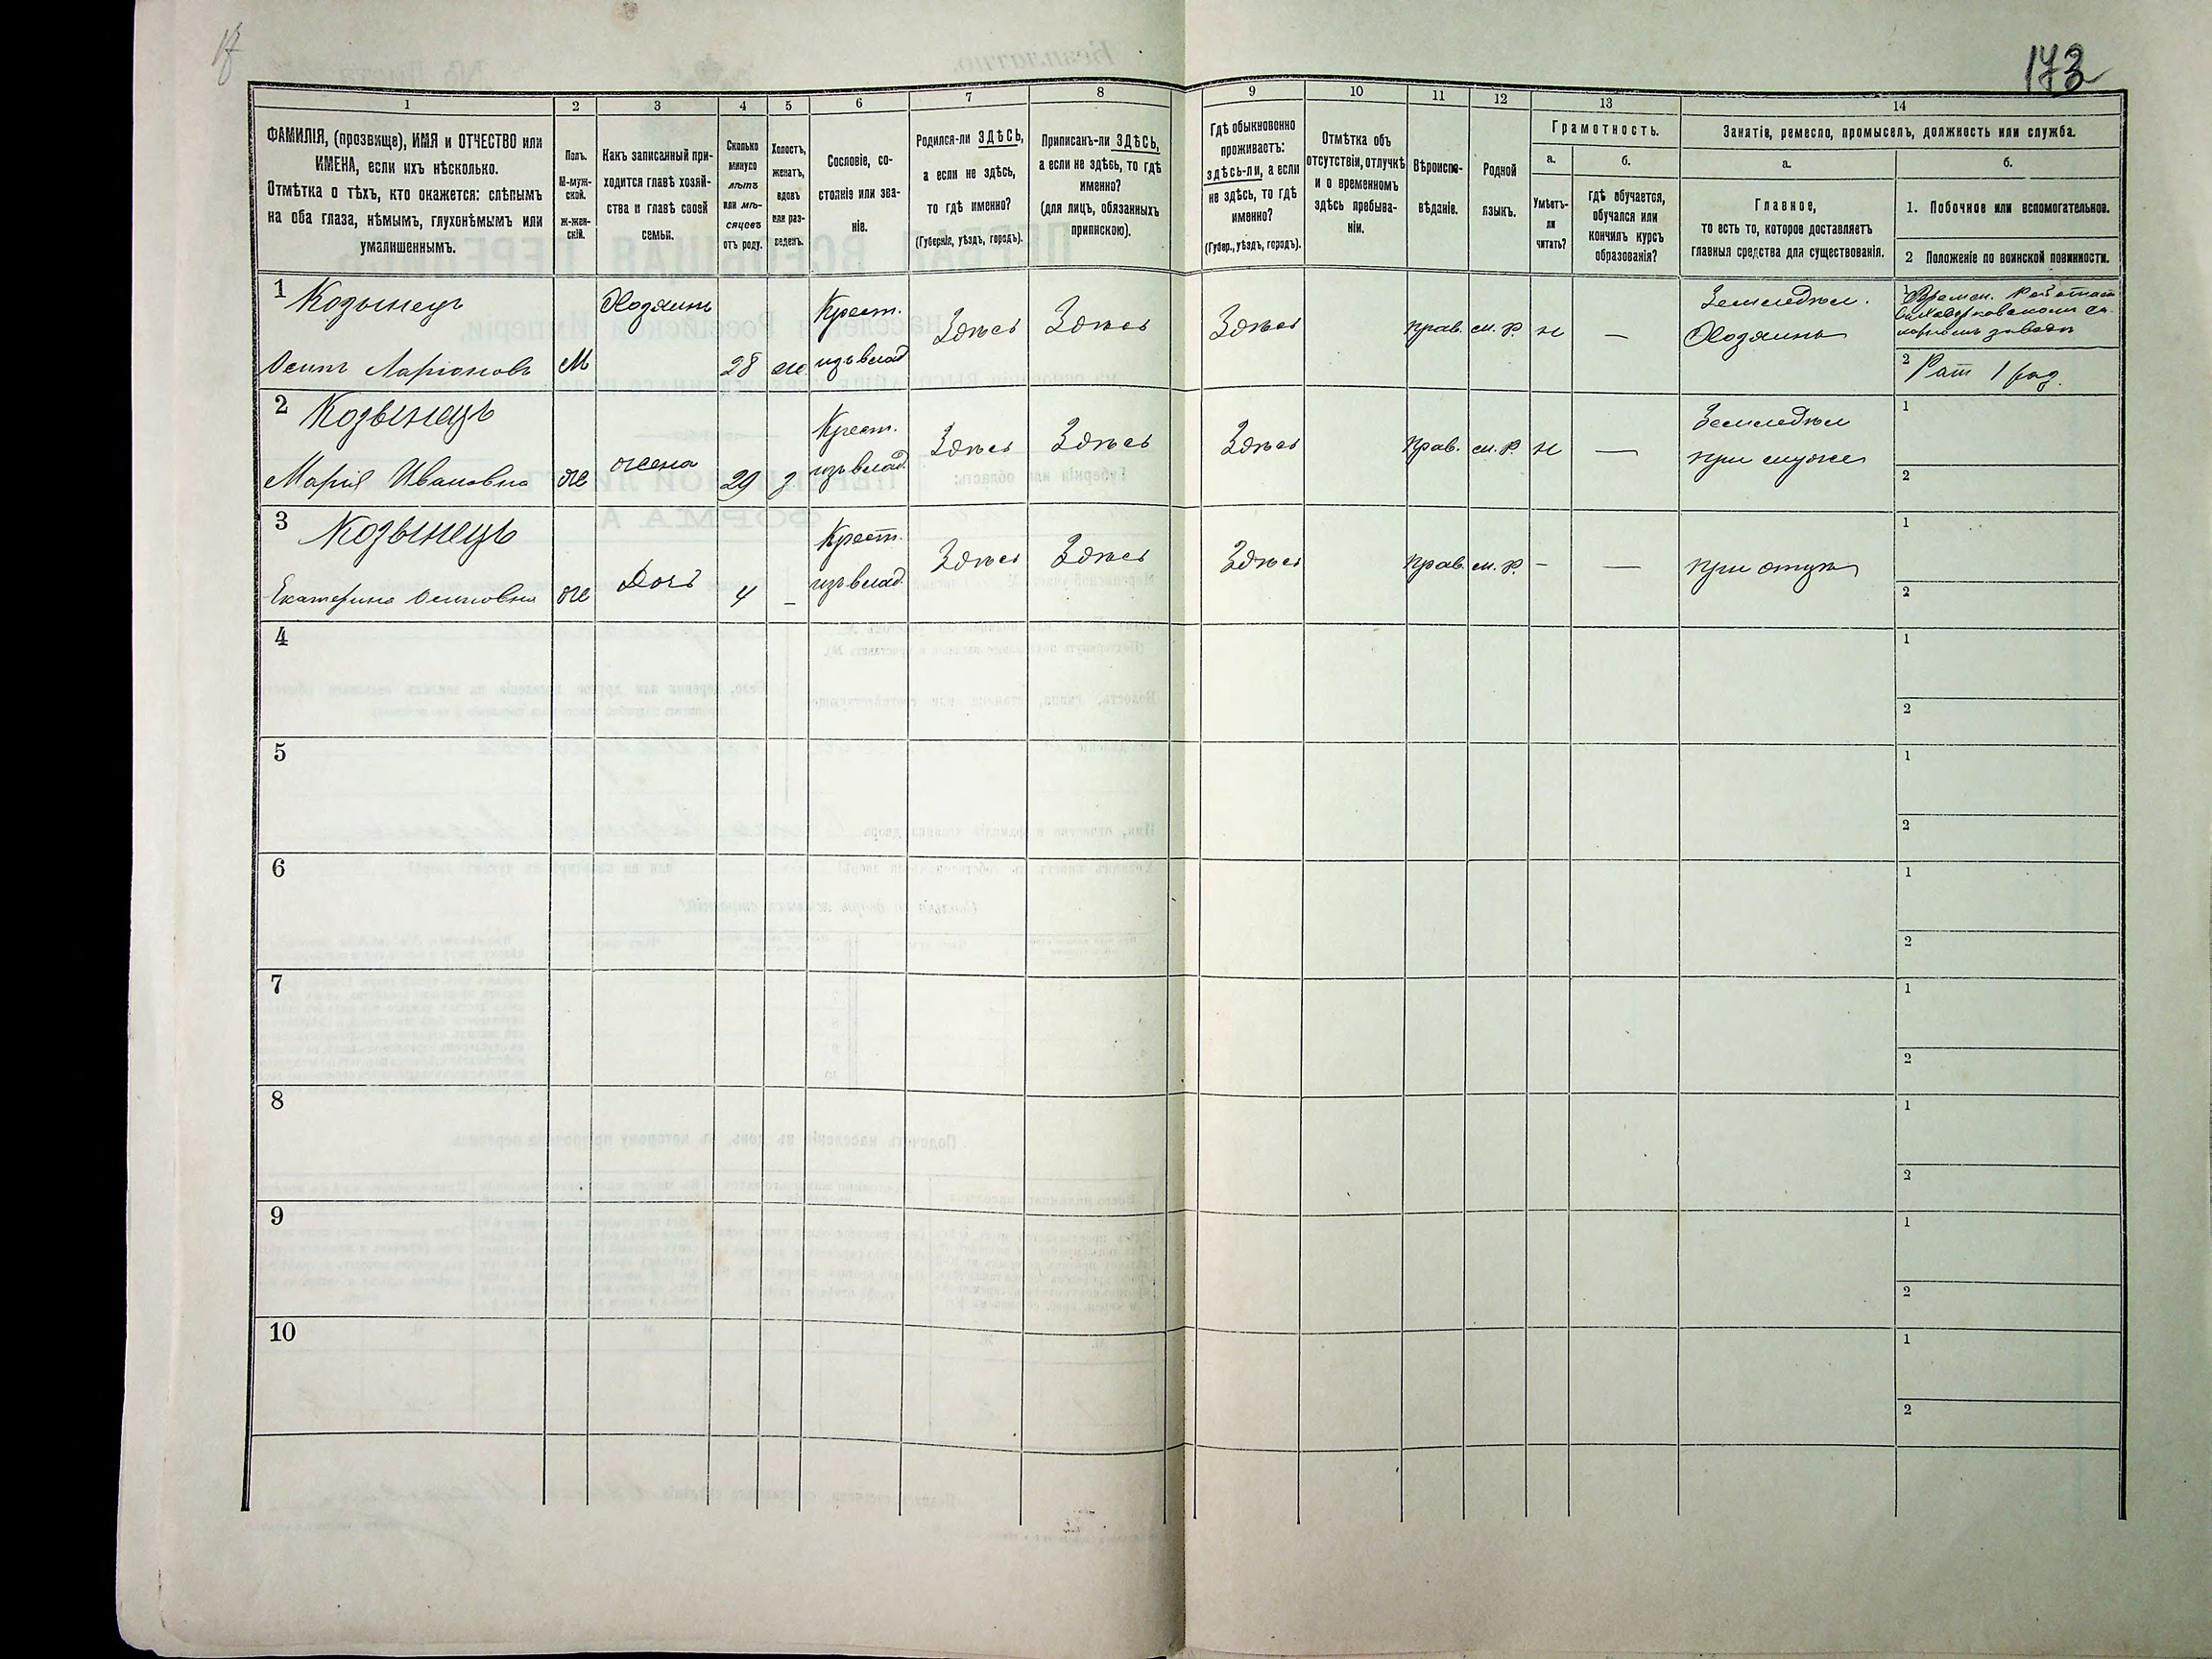 173
1 2 3 4 5 6 7 8 9 10 11 12 13 14
ФАМИЛІЯ, (прозвище), ИМЯ и ОТЧЕСТВО или
ИМЕНА, если ихъ нѣсколько.
Отмѣтка о тѣхъ, кто окажется: слѣпымъ
на оба глаза, нѣмымъ, глухонѣмымъ или
умалишеннымъ.
Полъ.
М-муж-
ской.
Ж-жен-
скій.
Какъ записанный при-
ходится главѣ хозяй-
ства и главѣ своей
семьи.
Сколько
минуло
лѣтъ
или мѣ-
сяцевъ
отъ роду.
Холостъ,
женатъ,
вдовъ
или раз-
веденъ.
Сословіе, со-
стояніе или зва-
ніе.
Родился-ли ЗДѢСЬ,
а если не здѣсь,
то гдѣ именно?
(Губернія, уѣздъ, городъ).
Приписанъ-ли ЗДѢСЬ,
а если не здѣсь, то гдѣ
именно?
(для лицъ, обязанныхъ
припискою).
Гдѣ обыкновенно
проживаетъ:
здѣсь-ли, а если
не здѣсь, то гдѣ
именно?
(Губер., уѣздъ, городъ).
Отмѣтка объ
отсутствіи, отлучкѣ
и о временномъ
здѣсь пребыва-
ніи.
Вѣроиспо-
вѣданіе.
Родной
языкъ.
Грамотность.
а.
Умѣетъ-
ли
читать?
б.
гдѣ обучается,
обучался или
кончилъ курсъ
образованія?
Занятіе, ремесло, промыселъ, должность или служба.
а.
Главное,
то есть то, которое доставляетъ
главныя средства для существованія.
б.
1. Побочное или вспомогательное.
2 Положеніе по воинской повинности.
1 Козынецъ Хозяинъ Крест. Здѣсь Здѣсь Здѣсь прав. м. р. н — Земледѣл.
Осипъ Ларіоновъ М 28 ж изъ влад Хозяинъ
1 Времен. Работает
заводѣ
2 Рат 1 раз.
2 Козынецъ Крест. Здѣсь Здѣсь Здѣсь прав. м. р. н — Земледѣл
Марія Ивановна ж жена 29 з изъ влад. при мужѣ
1
2
3 Козынецъ Крест. Здѣсь Здѣсь Здѣсь прав. м. р. - — при отцѣ
Екатерина Осиповна ж Дочь 4 - изъ влад.
1
2
4
1
2
5
1
2
6
1
2
7
1
2
8
1
2
9
1
2
10
1
2